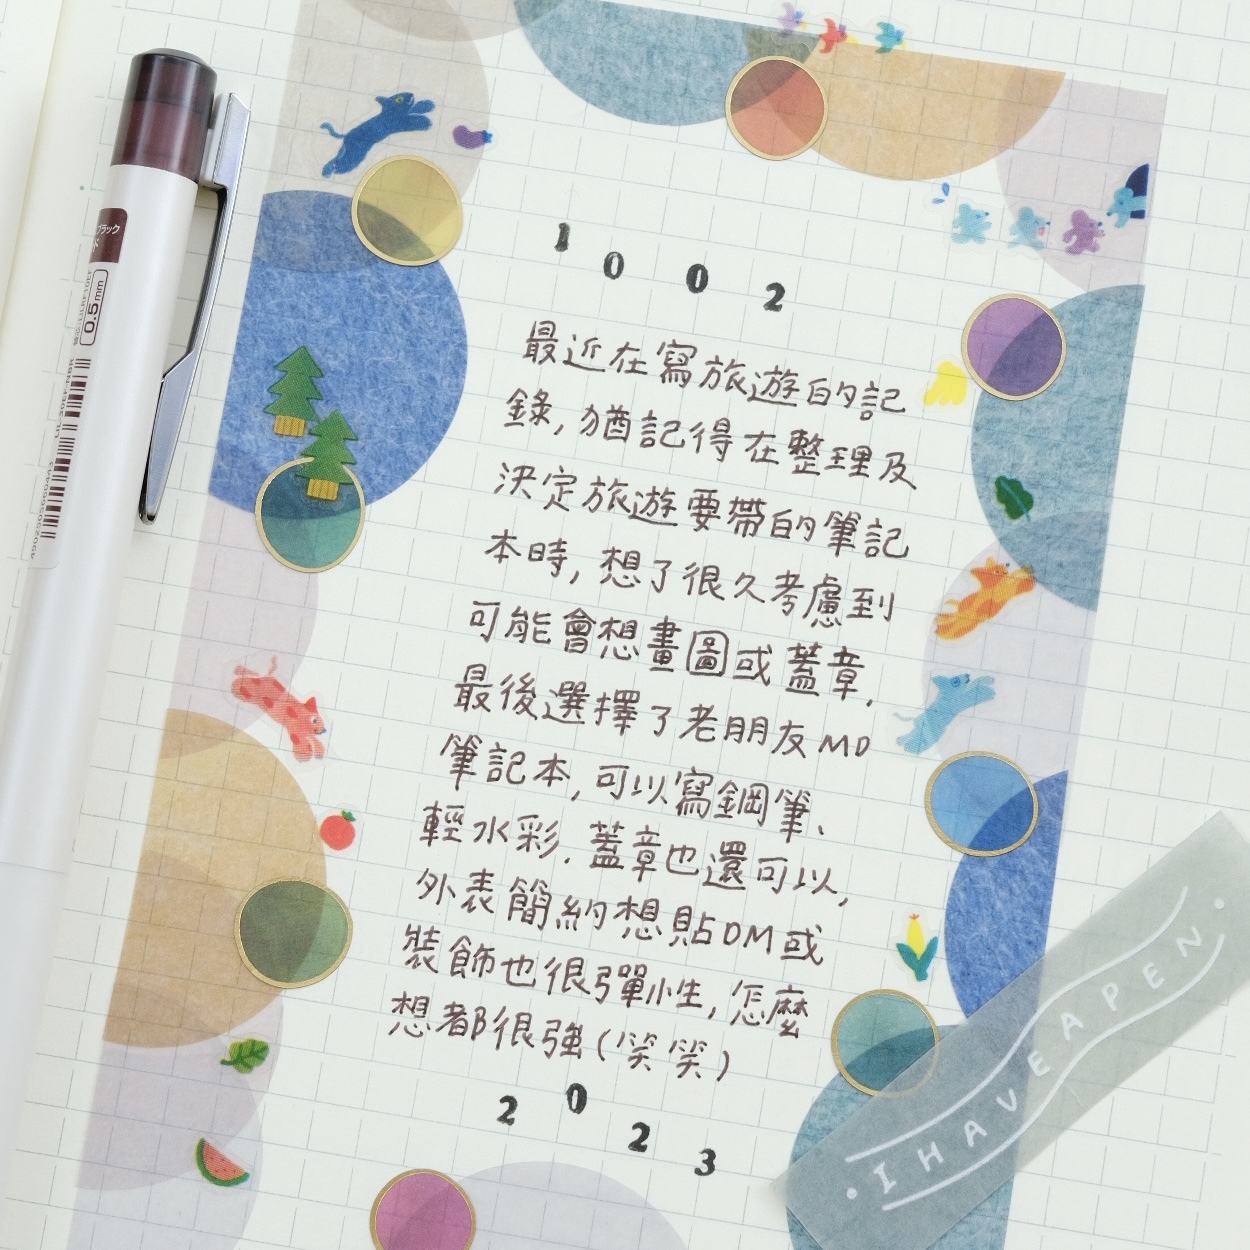 1002
最近在寫旅遊的記
錄,猶記得在整理及
決定旅遊要帶的筆記
本時,想了很久考慮到
可能會想畫圖或蓋章,
最後選擇了老朋友MD
筆記本,可以寫鋼筆、
輕水彩.蓋章也還可以,
外表簡約想貼DM或
裝飾也很彈性,怎麼
想都很強(笑笑)
2023
I HAVE A PEN
ブラック
0.5mm